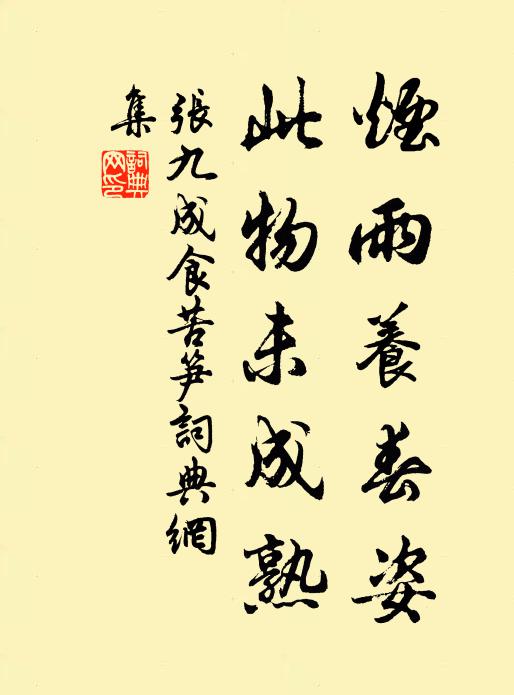 煙雨養春姿
此物未成熟
張九成食苦笋詞典網
集
詞典網印